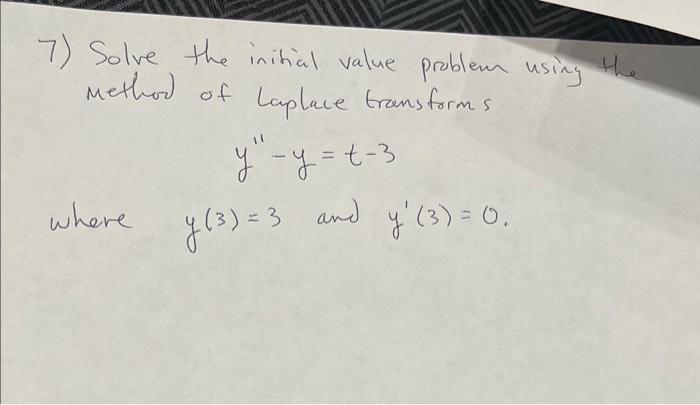 7) Solve the initial value problem using the
method of Laplace transforms
y'' - y = t - 3
where y(3) = 3 and y'(3) = 0.